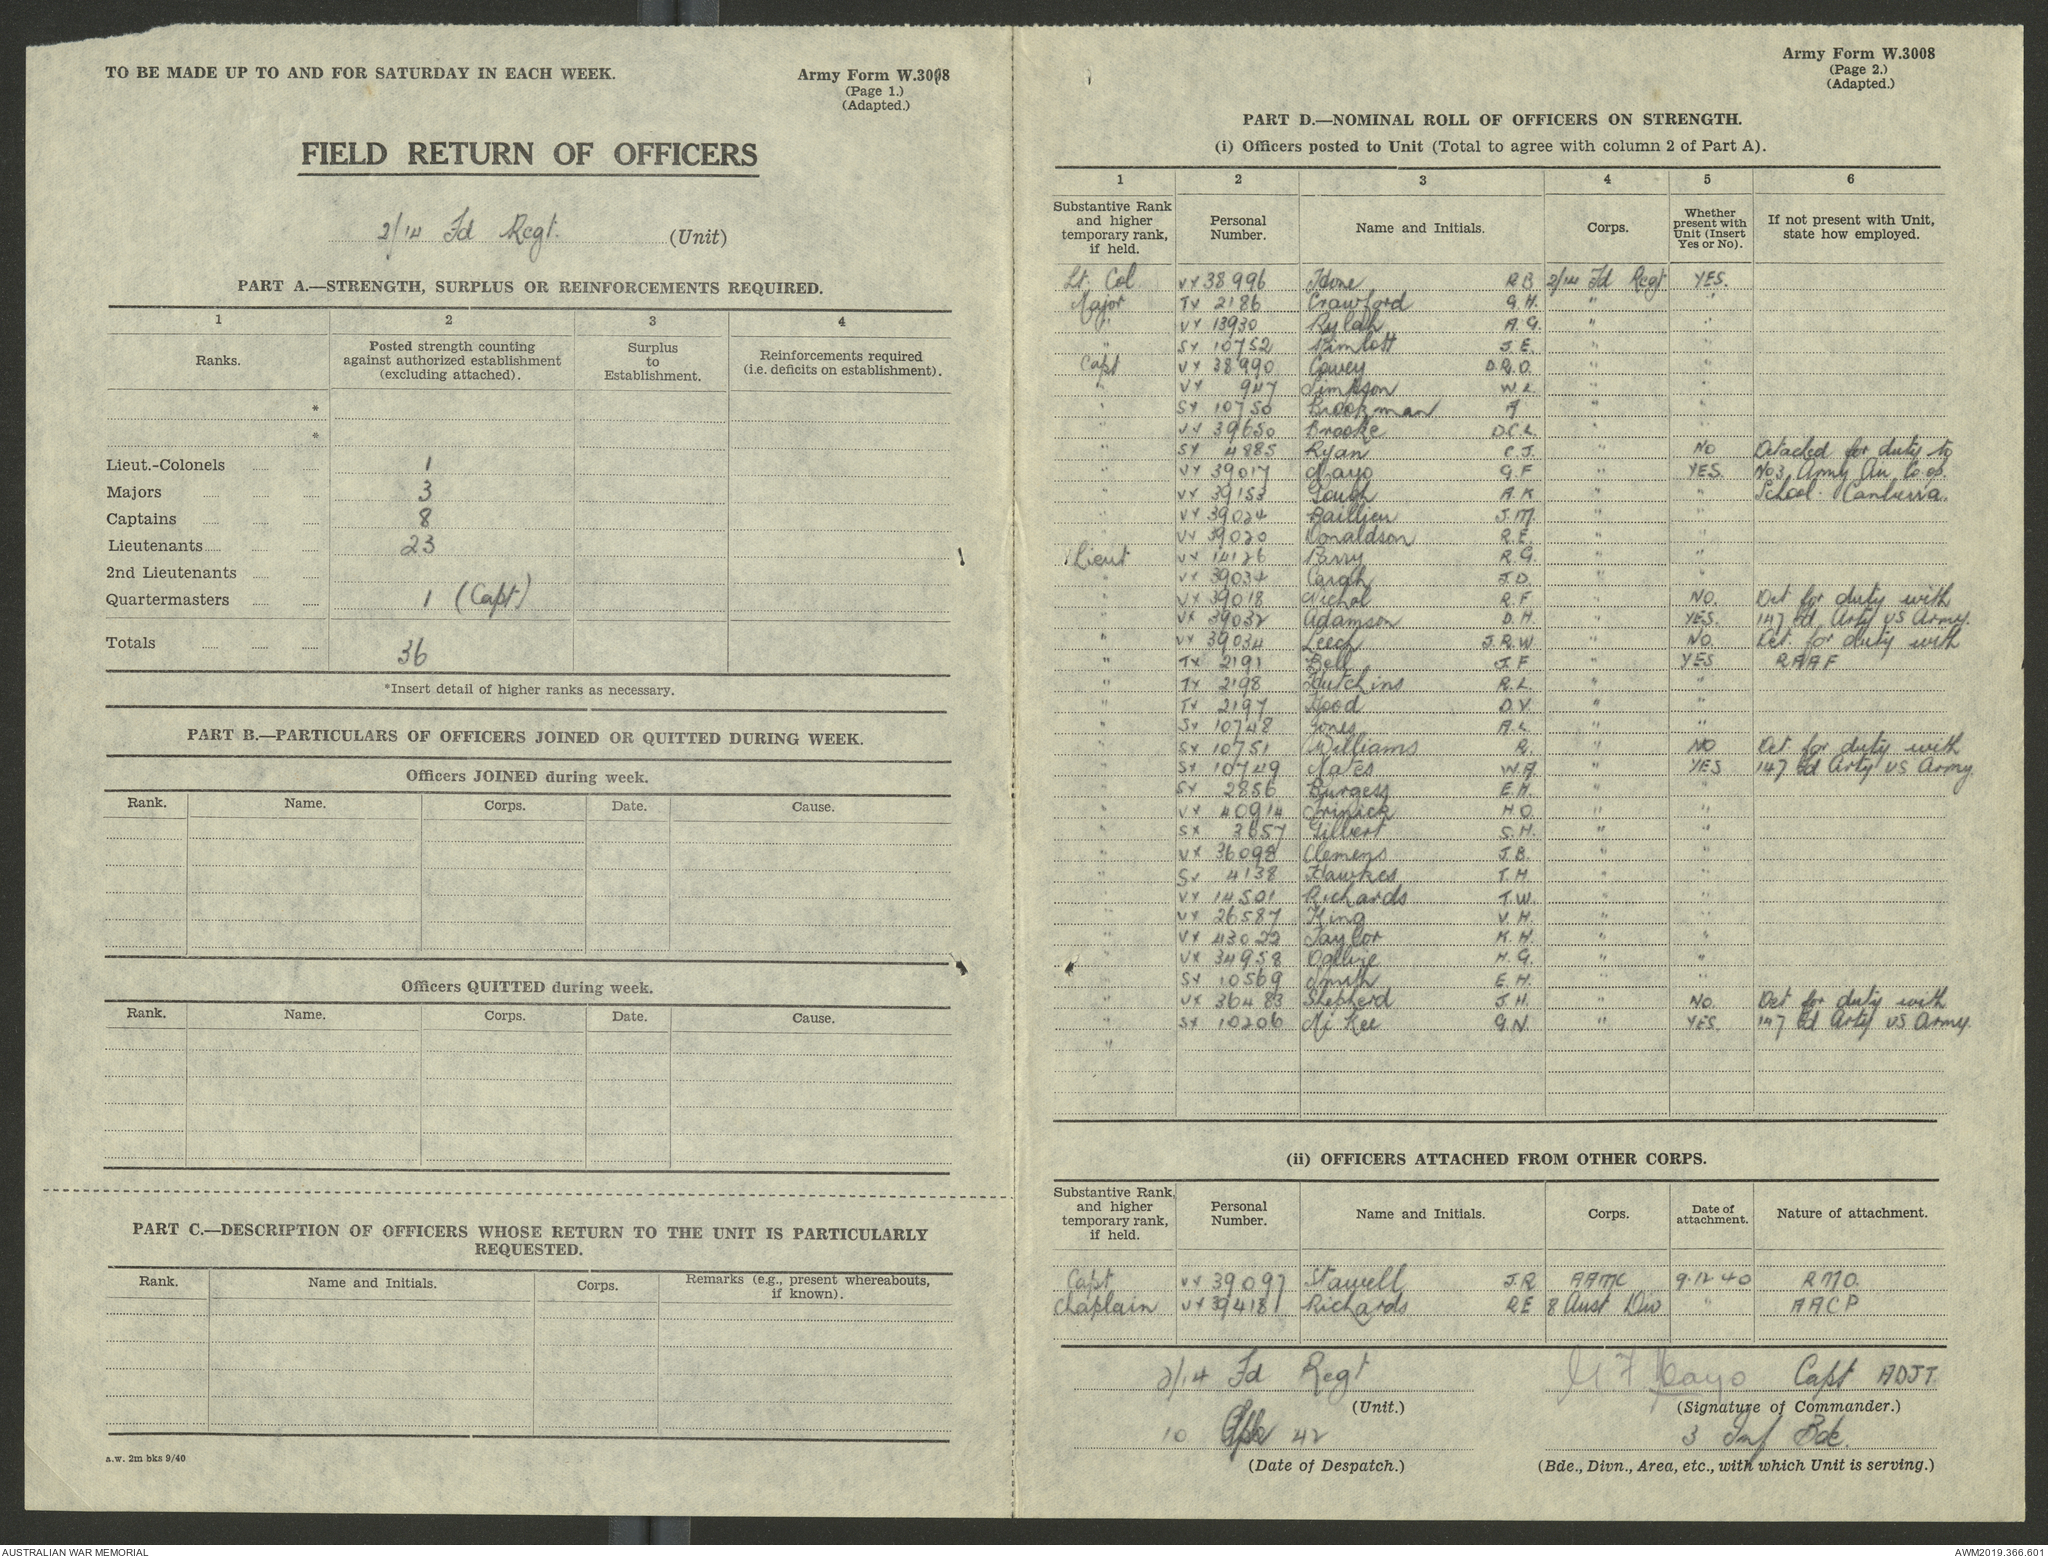 TO BE MADE UP TO AND FOR SATURDAY IN EACH WEEK.
Army Form W.3008
(Page 1.)
(Adapted.)
FIELD RETURN OF OFFICERS
2/14 Fd Regt. (Unit)
PART A.—STRENGTH, SURPLUS OR REINFORCEMENTS REQUIRED.
1 2 3 4
Ranks. Posted strength counting against authorized establishment (excluding attached). Surplus to Establishment. Reinforcements required (i.e. deficits on establishment).
*
*
Lieut.-Colonels 1
Majors 3
Captains 8
Lieutenants 23
2nd Lieutenants
Quartermasters 1 (Capt)
Totals 36
*Insert detail of higher ranks as necessary.
PART B.—PARTICULARS OF OFFICERS JOINED OR QUITTED DURING WEEK.
Officers JOINED during week.
Rank. Name. Corps. Date. Cause.
Officers QUITTED during week.
Rank. Name. Corps. Date. Cause.
PART C.—DESCRIPTION OF OFFICERS WHOSE RETURN TO THE UNIT IS PARTICULARLY
REQUESTED.
Rank. Name and Initials. Corps. Remarks (e.g., present whereabouts, if known).
a.w. 2m bks 9/40
Army Form W.3008
(Page 2.)
(Adapted.)
PART D.—NOMINAL ROLL OF OFFICERS ON STRENGTH.
(i) Officers posted to Unit (Total to agree with column 2 of Part A).
1 2 3 4 5 6
Substantive Rank and higher temporary rank, if held. Personal Number. Name and Initials. Corps. Whether present with Unit (Insert Yes or No). If not present with Unit, state how employed.
Lt. Col VX 38996 Hone R B 2/14 Fd Regt YES.
Major TX 2186 Crawford G. H. " "
" VX 13930 Rylah A. G. " "
" SX 10752 Pimlott J. E. " "
Capt VX 38990 Covey D.R.O. " "
" VX 947 Simpson W. L. " "
" SX 10750 Brookman A " "
" VX 39650 Brooke D.C.L. " "
" SX 4885 Ryan C. J. " NO Detached for duty to
" VX 39017 Mayo G. F " YES. No3 Army Air Co op.
" VX 39153 Gough A. K " " School. Canberra.
" VX 39024 Baillieu J. M. " "
" VX 39020 Donaldson R. E. " "
Lieut VX 14126 Berry R. G. " "
" VX 39034 Ceigh J. D. " "
" VX 39018 Nichol R. F " NO. Det for duty with
" VX 39032 Adamson D. H. " YES. 147 Fd Arty US Army.
" VX 39034 Leech J. R. W " NO. Det. for duty with
" TX 2191 Bell J. F " YES RAAF
" TX 2198 Hutchins R. L. " "
" TX 2197 Hood D. V. " "
" SX 10748 Jones A. L. " "
" SX 10751 Williams R. " NO Det for duty with
" SX 10749 Nates W. A. " YES 147 Fd Arty US Army
" SX 2856 Burgess E. H. " "
" VX 40914 Trinick H O. " "
" SX 3657 Gilbert S. H. " "
" VX 36098 Clemens J. B. " "
" SX 4138 Hawkes T. H. " "
" VX 14501 Richards T. W. " "
" VX 26587 King V. H. " "
" VX 43022 Taylor K. H. " "
" VX 34958 Ogilvie H. G. " "
" SX 10569 Smith E. H. " "
" VX 36483 Shepherd J. H. " NO. Det for duty with
" SX 10206 Mc Kee G. N. " YES. 147 Fd Arty US Army.
"
(ii) OFFICERS ATTACHED FROM OTHER CORPS.
Substantive Rank, and higher temporary rank, if held. Personal Number. Name and Initials. Corps. Date of attachment. Nature of attachment.
Capt VX 39097 Stawell J. R AAMC 9.12.40 RMO.
Chaplain VX 39418 Richards R E 8 Aust Div " AACP
2/14 Fd Regt
(Unit.)
G F Mayo Capt ADJT
(Signature of Commander.)
10 Apr 42
(Date of Despatch.)
3 Inf Bde.
(Bde., Divn., Area, etc., with which Unit is serving.)
AUSTRALIAN WAR MEMORIAL
AWM2019.366.601